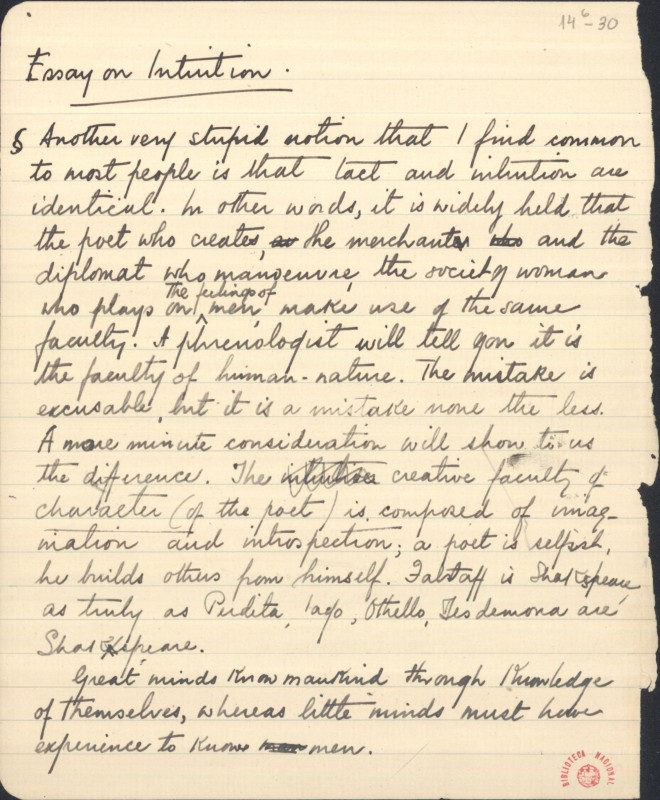 14 6 - 30
Essay on Intuition.
§ Another very stupid notion that I find common
to most people is that tact and intuition are
identical. In other words, it is widely held that
the poet who creates, the merchant and the
diplomat who manoeuvre, the society woman
The feelings of
who plays on men, make use of the same
faculty. A phrenologist will tell you it is
the faculty of human-nature. The mistake is
excusable, but it is a mistake none the less.
A more minute consideration will show to us
the difference. The creative faculty of
character (of the poet) is composed of imag-
ination and introspection; a poet is selfish,
he builds others from himself. Falstaff is Shakspeare,
as truly as Perdita, Iago, Othello, Desdemona are
Shakspeare.
Great minds know mankind through knowledge
of themselves, whereas little minds must have
experience to know men.
BIBLIOTECA NACIONAL